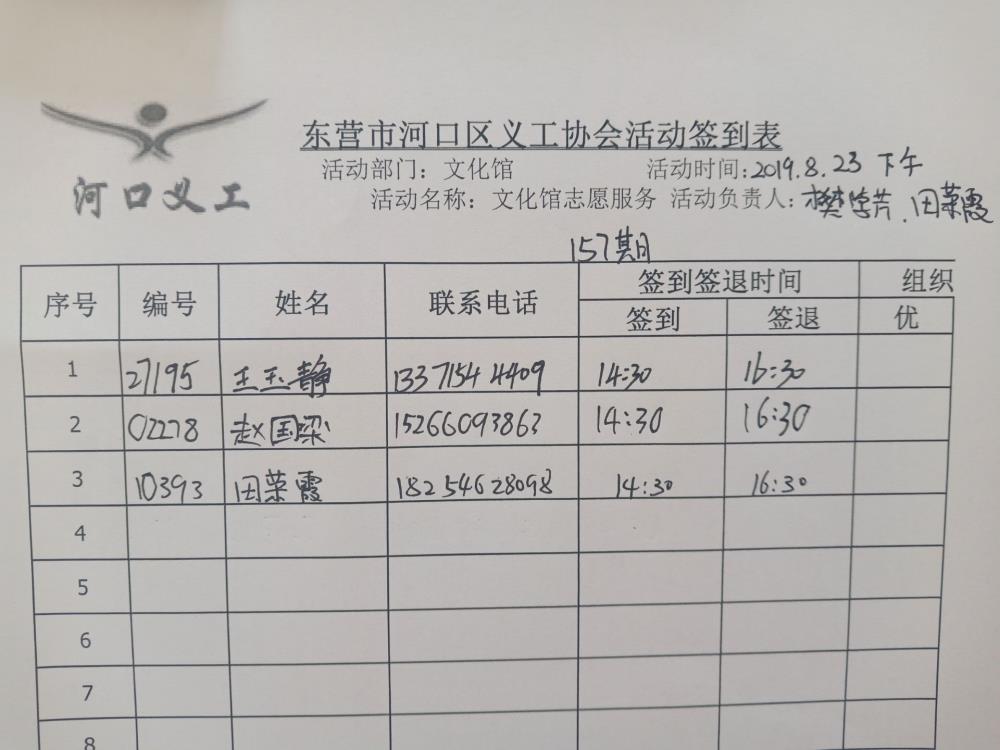 东营市河口区义工协会活动签到表
河口义工
活动部门：文化馆 活动时间：2019.8.23 下午
活动名称：文化馆志愿服务 活动负责人：樊学芳、田荣霞
157期
序号 编号 姓名 联系电话 签到签退时间 组织
签到 签退 优
1 27195 王玉静 13371544409 14:30 16:30
2 02278 赵国梁 15266093863 14:30 16:30
3 10393 田荣霞 18254628098 14:30 16:30
4
5
6
7
8